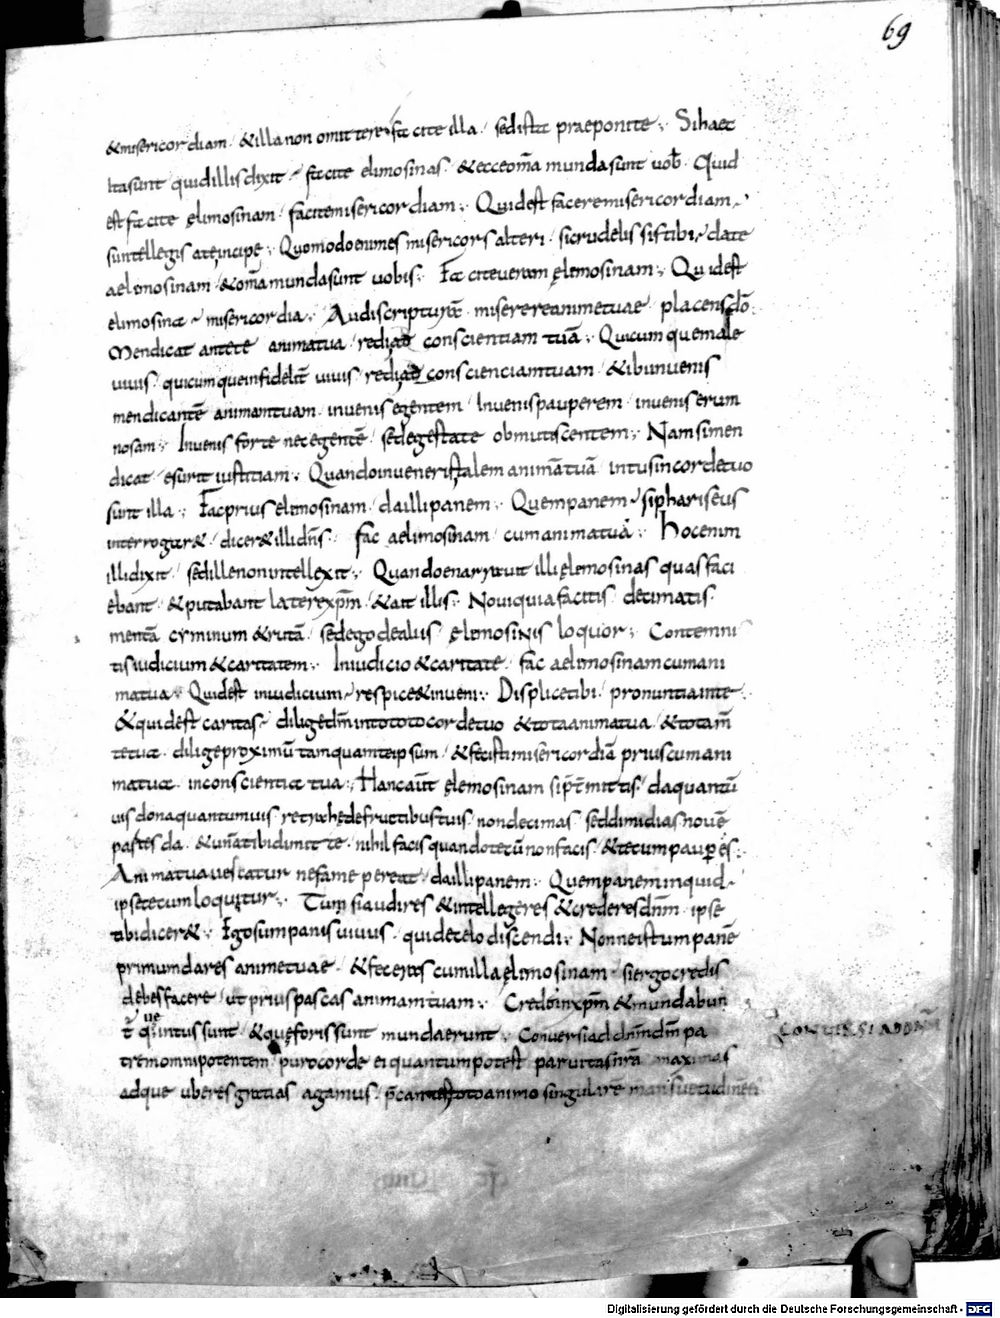 69
&misericordiam · &illa non omittere · facite illa · sed ista praeponite · Si haec
ita sunt quid illis dixit · facite elimosinas · & ecce om̄a munda sunt uob̄ · Quid
est facite ęlimosinam · facite misericordiam · Quid est facere misericordiam ·
si intellegis a te incipe · Quomodo enim es misericors alteri · si crudelis sis tibi · date
aelimosinam · & om̄a munda sunt uobis · Facite ueram ęlemosinam · Quid est
elimosina · misericordia · Audi scripturā · miserere animę tuae · placens dō ·
Mendicat ante te anima tua · redi ad conscientiam tuā · Quicumque male
uiuis · quicumque infidelit̄ uiuis · redi ad conscienciam tuam · & ibi inuenis
mendicantē animam tuam · inuenis egentem · Inuenis pauperem · inuenis erum
nosam · Inuenis forte nec egentē · sed egestate obmutiscentem · Nam si men
dicat · esurit iustitiam · Quando inueneris talem animā tuā · intus in corde tuo
sunt illa · Fac prius elimosinam · da illi panem · Quem panem · si phariseus
interrogar& · dicer& illi dn̄s · fac aelimosinam cum anima tuā · Hoc enim
illi dixit · sed ille non intellexit · Quando enarrauit illi ęlemosinas quas faci
ebant · & putabant latere xp̄m · & ait illis · Noui quia facitis · decimatis
mentā cyminum & rutā · sed ego de aliis ęlimosinis loquor · Contemni
tis iudicium & caritatem · In iudicio & caritate · fac aelimosinam cum ani
ma tua · Quid est in iudicium · respice & inueni · Displice tibi · pronuntia in te ·
& quid est caritas · dilige dm̄ in toto corde tuo & tota anima tua · & tota m̄
te tua · dilige proximū tamquam te ipsum · & fecisti misericordiā prius cum ani
ma tua · in conscientia tua · Hanc aūt ęlemosinam si p̄t̄mittis · da quantū
uis dona quantum uis · retrahe de fructibus tuis · non decimas · sed dimidias nouē
partes da · & unā tibi dimitte · nihil facis quando tecū non facis · & tecum pauper es ·
Anima tua uescatur ne fame pereat · da illi panem · Quem panem inquid ·
ipse tecum loquitur · Tum si audires & intellegeres & crederes dn̄m · ipse
tibi dicer& · Ego sum panis uiuus · qui de celo discendi · Nonne istum panē
primum dares animę tuae · & feceres cum illa ęlimosinam · si ergo credis
debes facere · ut prius pascas animam tuam · Crede in xp̄m & mundabun
t̄ quę intus sunt · & quę foris sunt munda erunt · Conuersi ad dn̄m dm̄ pa
trem omnipotentem · puro corde ei quantum potest paruitas nr̄a maximas
adque uberes gratias agamus · p̄cantes toto animo singulare mansuetudinē